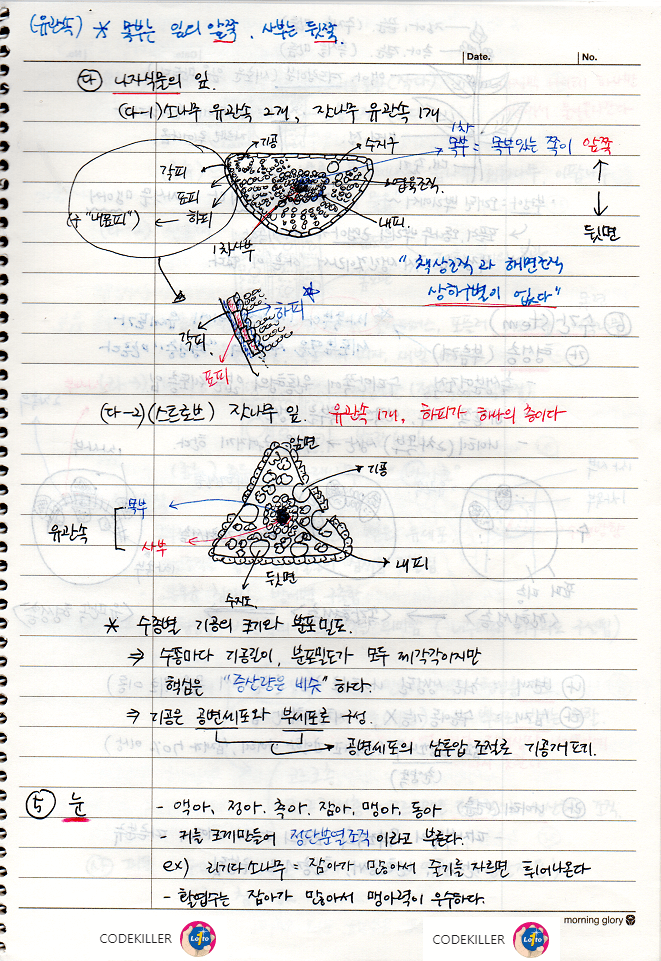 (유관속) * 목부는 잎의 앞쪽, 사부는 뒷쪽.
Date. No.
다 나자식물의 잎.
(다-1) 소나무 유관속 2개, 잣나무 유관속 1개
기공
수지구
1차
목부 = 목부있는 쪽이 앞쪽
각피
표피
하피
(구 "내표피")
엽육조직
내피
1차사부
뒷면
"책상조직과 해면조직
상하구별이 없다"
하피
각피
표피
(다-2) (스트로브) 잣나무 잎. 유관속 1개, 하피가 하나의 층이다
앞면
기공
목부
유관속
사부
내피
뒷면
수지도
* 수종별 기공의 크기와 분포밀도.
⇒ 수종마다 기공길이, 분포밀도가 모두 제각각이지만
핵심은 "증산량은 비슷" 하다.
⇒ 기공은 공변세포와 부세포로 구성.
공변세포의 삼투압 조절로 기공개폐기.
5 눈
- 액아, 정아, 측아, 잠아, 맹아, 동아
- 키를 크게만들어 정단분열조직이라고 부른다.
ex) 리기다소나무 = 잠아가 많아서 줄기를 자르면 튀어나온다
- 활엽수는 잠아가 많아서 맹아력이 우수하다.
morning glory
CODEKILLER Lotto CODEKILLER Lotto